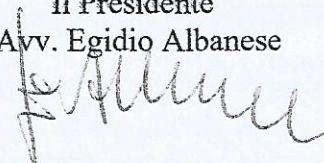 Il Presidente
Avv. Egidio Albanese